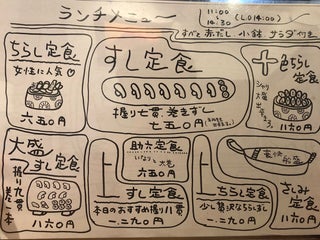 ランチメニュー
11:00
〜
14:30 (L.O 14:00)
すべて 赤だし 小鉢 サラダ付き
ちらし定食
女性に人気♡
六五〇円
すし定食
握り七貫、巻きずし
七五〇円
十色ちらし定食
シャリ大盛
出来ます。
八六〇円
大盛
すし定食
握り九貫
巻一本
八六〇円
助六定食
いなりと大巻
六五〇円
上すし定食
本日のおすすめ握り八貫
一、二九〇円
上ちらし定食
少し贅沢なちらしすし
一、二九〇円
さしみ定食
八六〇円